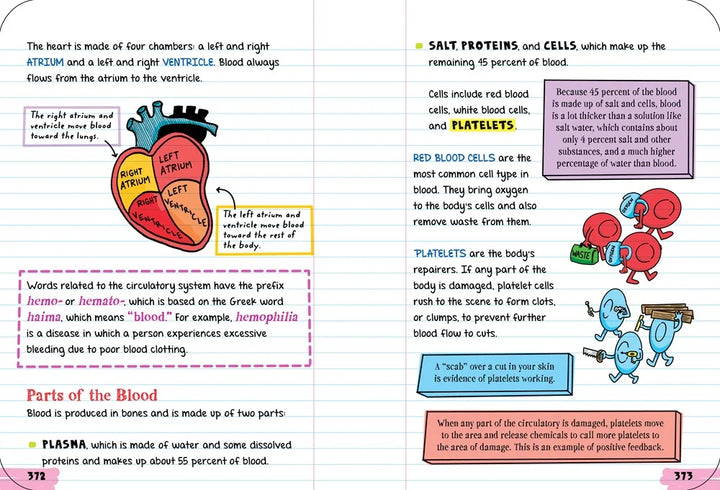 The heart is made of four chambers: a left and right
ATRIUM and a left and right VENTRICLE. Blood always
flows from the atrium to the ventricle.
The right atrium and
ventricle move blood
toward the lungs.
RIGHT
ATRIUM
LEFT
ATRIUM
RIGHT
VENTRICLE
LEFT
VENTRICLE
The left atrium and
ventricle move blood
toward the rest of
the body.
Words related to the circulatory system have the prefix
hemo- or hemato-, which is based on the Greek word
haima, which means "blood." For example, hemophilia
is a disease in which a person experiences excessive
bleeding due to poor blood clotting.
Parts of the Blood
Blood is produced in bones and is made up of two parts:
PLASMA, which is made of water and some dissolved
proteins and makes up about 55 percent of blood.
372
SALT, PROTEINS, and CELLS, which make up the
remaining 45 percent of blood.
Cells include red blood
cells, white blood cells,
and PLATELETS.
Because 45 percent of the blood
is made up of salt and cells, blood
is a lot thicker than a solution like
salt water, which contains about
only 4 percent salt and other
substances, and a much higher
percentage of water than blood.
RED BLOOD CELLS are the
most common cell type in
blood. They bring oxygen
to the body's cells and also
remove waste from them.
OXYGEN
WASTE
OXYGEN
PLATELETS are the body's
repairers. If any part of the
body is damaged, platelet cells
rush to the scene to form clots,
or clumps, to prevent further
blood flow to cuts.
A "scab" over a cut in your skin
is evidence of platelets working.
When any part of the circulatory is damaged, platelets move
to the area and release chemicals to call more platelets to
the area of damage. This is an example of positive feedback.
373